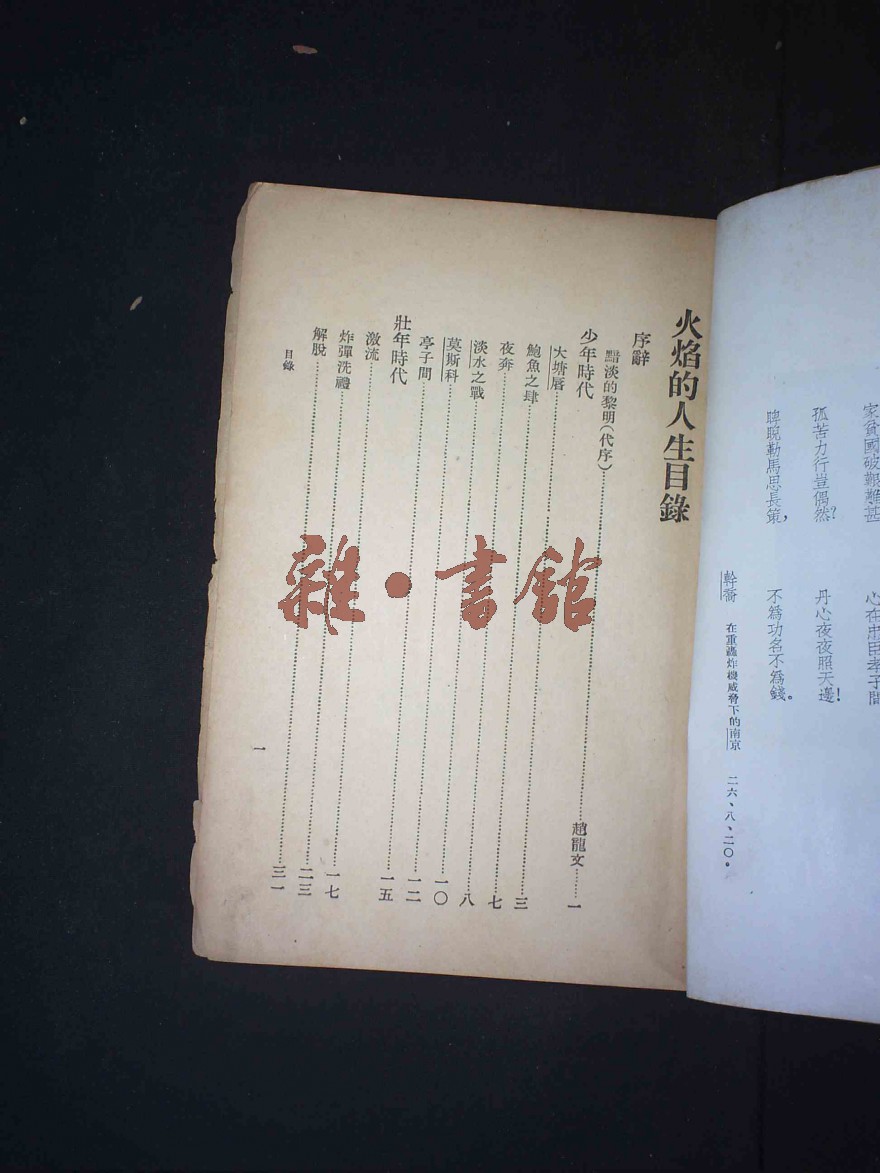 家貧國破艱難甚　心在忠臣孝子間
孤苦力行豈偶然？　丹心夜夜照天邊！
睥睨勒馬思長策，　不爲功名不爲錢。
幹喬　在重轟炸機威脅下的南京　二六、八、二〇。
火焰的人生目錄
序辭
黯淡的黎明(代序)……趙龍文……一
少年時代
大塘唇……三
鮑魚之肆……七
夜奔……八
淡水之戰……一〇
莫斯科……一二
亭子間……一五
壯年時代
激流……一七
炸彈洗禮……二三
解脫……三一
目錄　一
雜·書館